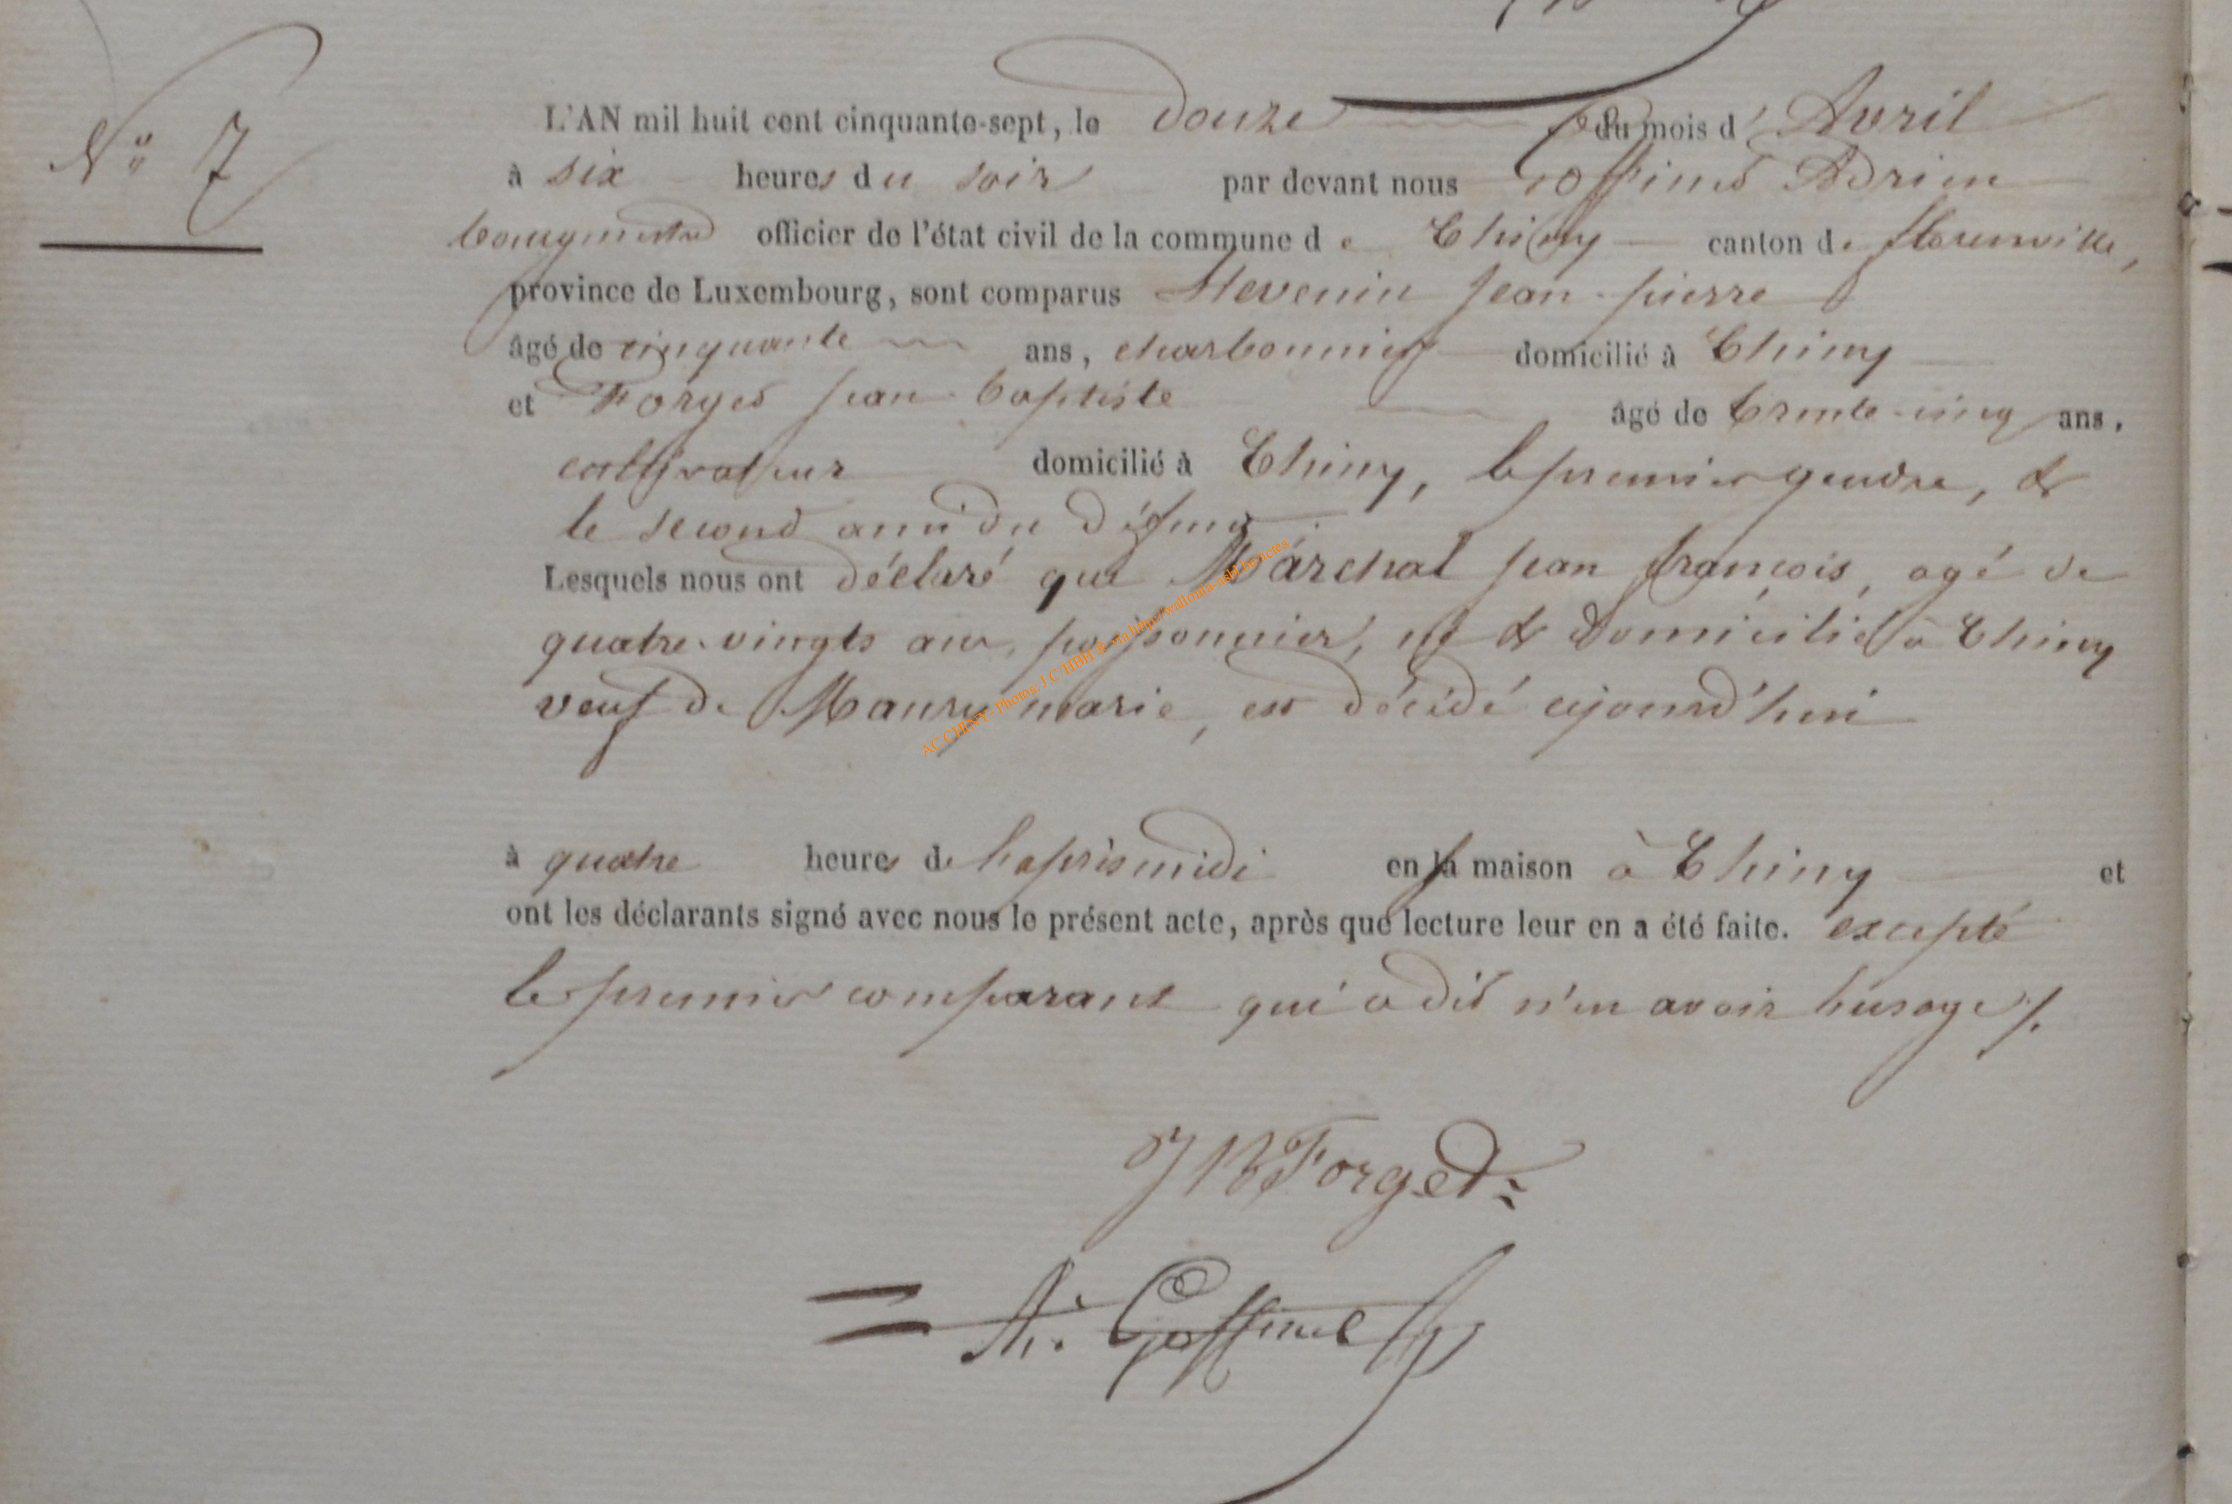 N° 7
L'AN mil huit cent cinquante-sept, le douze du mois d'Avril
à six heures du soir par devant nous Goffinet Adrien
bourgmestre officier de l'état civil de la commune de Chiny canton de florenville,
province de Luxembourg, sont comparus Stevenin Jean-pierre
âgé de cinquante ans, charbonnier domicilié à Chiny
et Forget Jean-baptiste âgé de trente-cinq ans,
cultivateur domicilié à Chiny, le premier gendre, &
le second ami du défunt
Lesquels nous ont déclaré que Maréchal Jean françois, agé de
quatre-vingts ans, poissonnier, né & domicilié à Chiny
veuf de Maury marie, est décédé aujourd'hui
AC CHINY - Photos J.C HBH &
à quatre heures de l'aprèsmidi en sa maison à Chiny et
ont les déclarants signé avec nous le présent acte, après que lecture leur en a été faite. excepté
le premier comparant qui a dit n'en avoir l'usage /.
JB Forget
A. Goffinet